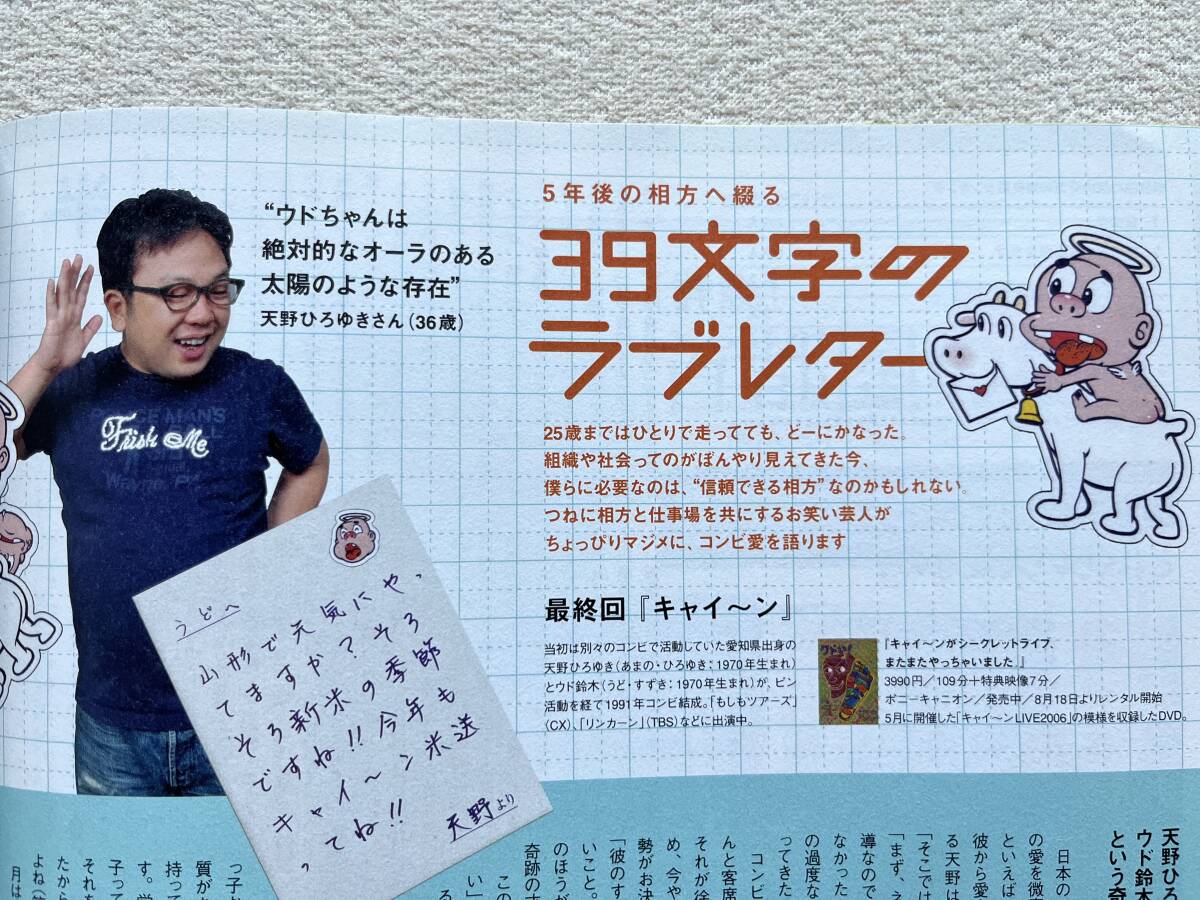 5年後の相方へ綴る
39文字の
ラブレター
“ウドちゃんは
絶対的なオーラのある
太陽のような存在”
天野ひろゆきさん(36歳)
Frish Me
25歳まではひとりで走ってても、どーにかなった。
組織や社会ってのがぼんやり見えてきた今、
僕らに必要なのは、“信頼できる相方”なのかもしれない。
つねに相方と仕事場を共にするお笑い芸人が
ちょっぴりマジメに、コンビ愛を語ります
最終回『キャイ〜ン』
当初は別々のコンビで活動していた愛知県出身の
天野ひろゆき(あまの・ひろゆき：1970年生まれ)
とウド鈴木(うど・すずき：1970年生まれ)が、ピン
活動を経て1991年コンビ結成。「もしもツアーズ」
(CX)、「リンカーン」(TBS)などに出演中。
『キャイ〜ンがシークレットライブ、
またまたやっちゃいました。』
3990円／109分＋特典映像7分／
ポニーキャニオン／発売中／8月18日よりレンタル開始
5月に開催した「キャイ〜ンLIVE2006」の模様を収録したDVD。
うどへ
山形で元気にやっ
てますか？そろ
そろ新米の季節
ですね!!今年も
キャイ〜ン米送
ってね!!
天野より
天野ひろ
ウド鈴木
という奇
日本の
の愛を微
といえば
彼から愛
る天野は
「そこでは
「まず、え
導なので
なかった
の過度な
ってきた
コンビ
んと客席
それが徐
め、今や
勢がお決
「彼のす
いこと。
のほうが
奇跡のす
この
い」
る
っ子
質が
持って
す。学
子って
それを
たから
よね(笑
月は